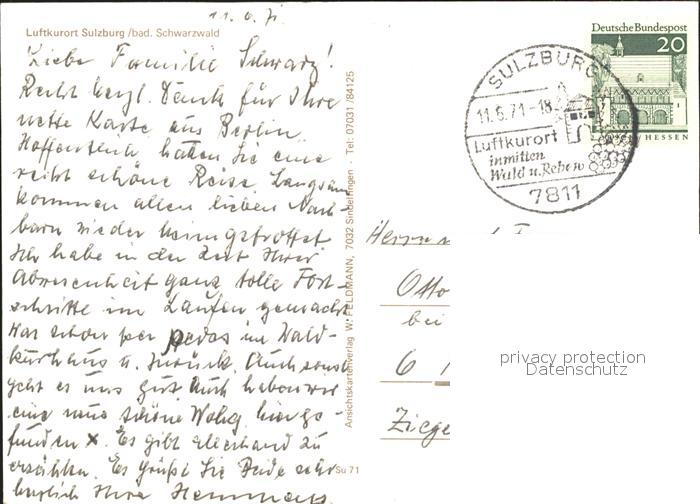 11.6.71
Luftkurort Sulzburg /bad. Schwarzwald
Liebe Familie Schwarz!
Recht herzl. Dank für Ihre
nette Karte aus Berlin.
Hoffentlich hatten Sie eine
recht schöne Reise. Langsam
kommen allen lieben Nach-
barn wieder heimgetrottet
Ich habe in der Zeit Ihrer
Abwesenheit ganz tolle Fort-
schritte im Laufen gemacht
War schon per pedes im Wald-
kurhaus u. zurück. Auch sonst
geht es uns gut. Auch haben wir
eine neue schöne Wohng. hier ge-
funden x. Es gibt allerhand zu
erzählen. Es grüßt Sie Beide sehr
herzlich Ihre
Ansichtskartenverlag W. FELDMANN, 7032 Sindelfingen . Tel: 07031/84125
Su 71
Deutsche Bundespost
20
HESSEN
SULZBURG
11.6.71-18
Luftkurort
inmitten
Wald u. Reben
7811
Herrn
Otto
bei
6
Ziege
privacy protection
Datenschutz